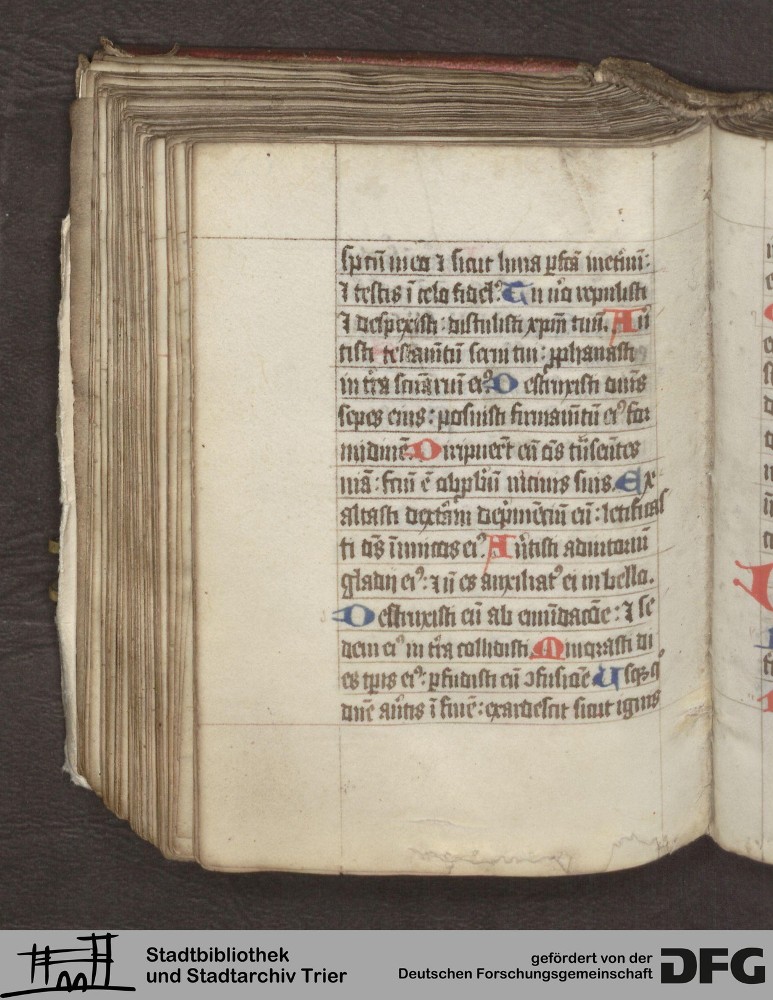 spectu meo ⁊ sicut luna ꝑfcā inetnū:
⁊ testis ī celo fidelꝰ. Tu uͦ repulisti
⁊ despexisti: distulisti xp̄m tuū. Au͛
tisti testamtū serui tui: ꝓphanasti
in t͛ra scuariū eiꝰ. Destruxisti om̄s
sepes eius: posuisti firmamtū eiꝰ for
midinē. Diripuer̄t eū om̄s tn̄seūtes
uiā: fctū ē obpbriū uicinis suis. Ex
altasti dext͛am depmēciū eū: letificas
ti om̄s inimicos eiꝰ. Au͛tisti adiutoriū
gladij eiꝰ: ⁊ n̄ es auxiliatꝰ ei in bello.
Destruxisti eū ab emūdacōe: ⁊ se
dem eiꝰ in t͛ra collidisti. Minorasti di
es tp̄is eiꝰ: ꝑfudisti eū ꝯfusiōe. Usqꝫ qͦ
dn̄e au͛tis ī finē: exardescit sicut ignis
Stadtbibliothek
und Stadtarchiv Trier
gefördert von der
Deutschen Forschungsgemeinschaft
DFG